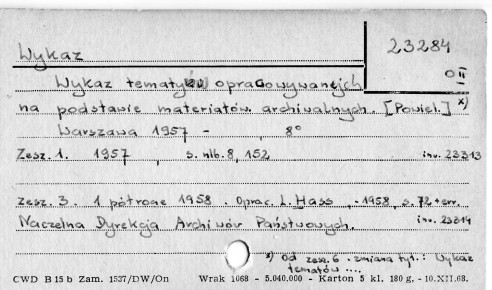 Wykaz
23284
O II
Wykaz tematyki opracowywanejch
na podstawie materiałów archiwalnych. [Powiel.] *)
Warszawa 1957 - , 8°
Zesz. 1. 1957, s. nlb. 8, 152 inw. 23313
Zesz. 3. 1 półrocze 1958. Oprac. L. Hass, -1958, s. 72 + err.
Naczelna Dyrekcja Archiwów Państwowych. inw. 23314
*) Od zesz. 6. zmiana tyt.: Wykaz
tematów ....
CWD B 15 b Zam. 1537/DW/On Wrak 1068 - 5.040.000 - Karton 5 kl. 180 g. - 10.XII.68.